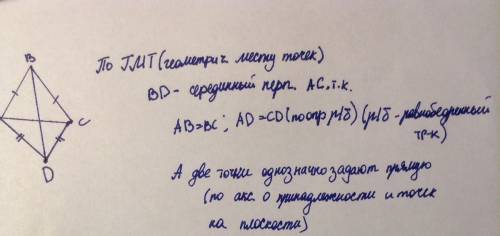 B
C
D
По ГМТ (геометрич. месту точек)
BD - серединный перп. AC, т.к.
AB=BC; AD=CD (по опр р/б) (р/б - равнобедренный
тр-к)
А две точки однозначно задают прямую
(по акс. о принадлежности и точек
на плоскости)